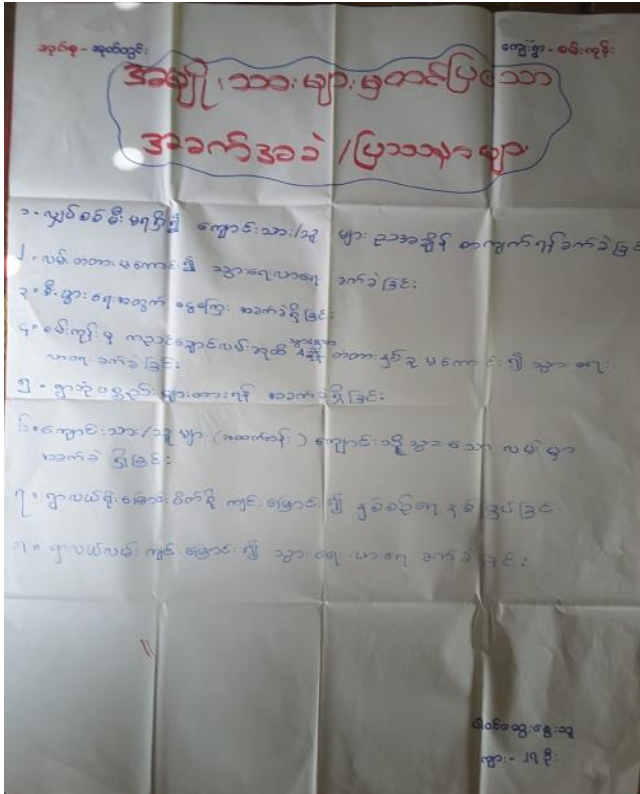 အုပ်စု - အုတ်တွင်း
ကျေးရွာ - စမ်းကုန်း
အမျိုးသားများမှတင်ပြသော
အခက်အခဲ / ပြဿနာများ
၁။ လျှပ်စစ်မီးမရရှိ၍ ကျောင်းသား/သူ များ ညအချိန် စာကျက်ရန်ခက်ခဲခြင်း
၂။ လမ်းတံတားမကောင်း၍ သွားရေးလာရေး ခက်ခဲခြင်း
၃။ စီးပွားရေးအတွက် ငွေကြေး အခက်ခဲရှိခြင်း
၄။ စမ်းကုန်းမှ ချောင်လမ်းသို့ထိ တံတားနှစ်ခုမကောင်း၍ သွားရေး
လာရေးခက်ခဲခြင်း
၅။ ရွာသုံးပစ္စည်းများထားရန် အခက်ခဲရှိခြင်း
၆။ ကျောင်းသား/သူများ (အထက်တန်း) ကျောင်းသို့သွားသော လမ်းမှာ
အခက်ခဲ ရှိခြင်း
၇။ ရွာလယ် မြောင်း ကျင်းမြောင်း၍ နှစ်စဉ်ရေနစ်မြုပ်ခြင်း
၈။ ရွာလယ်လမ်း ကျဉ်းမြောင်း၍ သွားရေးလာရေးခက်ခဲခြင်း
ပါဝင်ဆွေးနွေးသူ
ကျား - ၂၇ ဦး